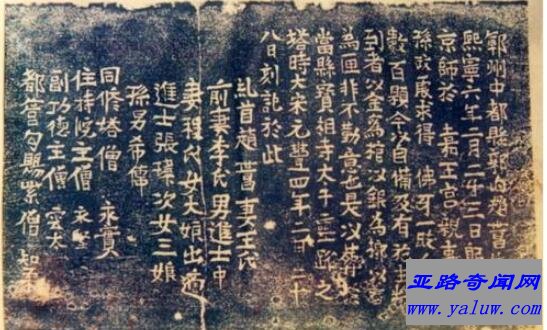 鄆州中都縣郭邑趙昌
熙寧六年二月二十三日郎
京師於嘉王宮親事
孫政處求得佛牙一枚
數百顆今以自備及有施
到者以金為棺以銀為槨以石
為匣非不勤意也是以葬於
當縣寶相寺大之
塔時大宋元豐四年二月二十
八日刻記於此
糺首趙昌妻王氏
前妻李氏男進士中
妻程氏女大娘出適
進士張次女三娘
孫男希傳
同修塔僧 永賓
住持院主僧 永
副功德主僧 雲太
都管勾賜紫僧 知
亚路奇闻网
www.yaluw.com